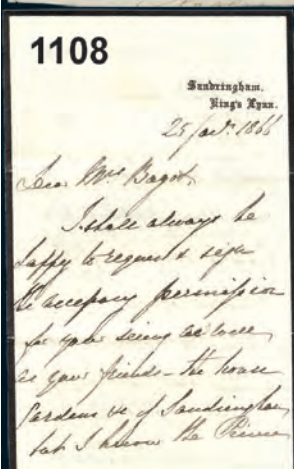 1108
Sandringham.
King's Lynn.
25 Jany. 1866
Dear Mrs. Bagot,
I shall always be
happy to request & sign
the necessary permission
for your seeing as well
as your friends - the house
Gardens &c of Sandringham
but I know the Prince